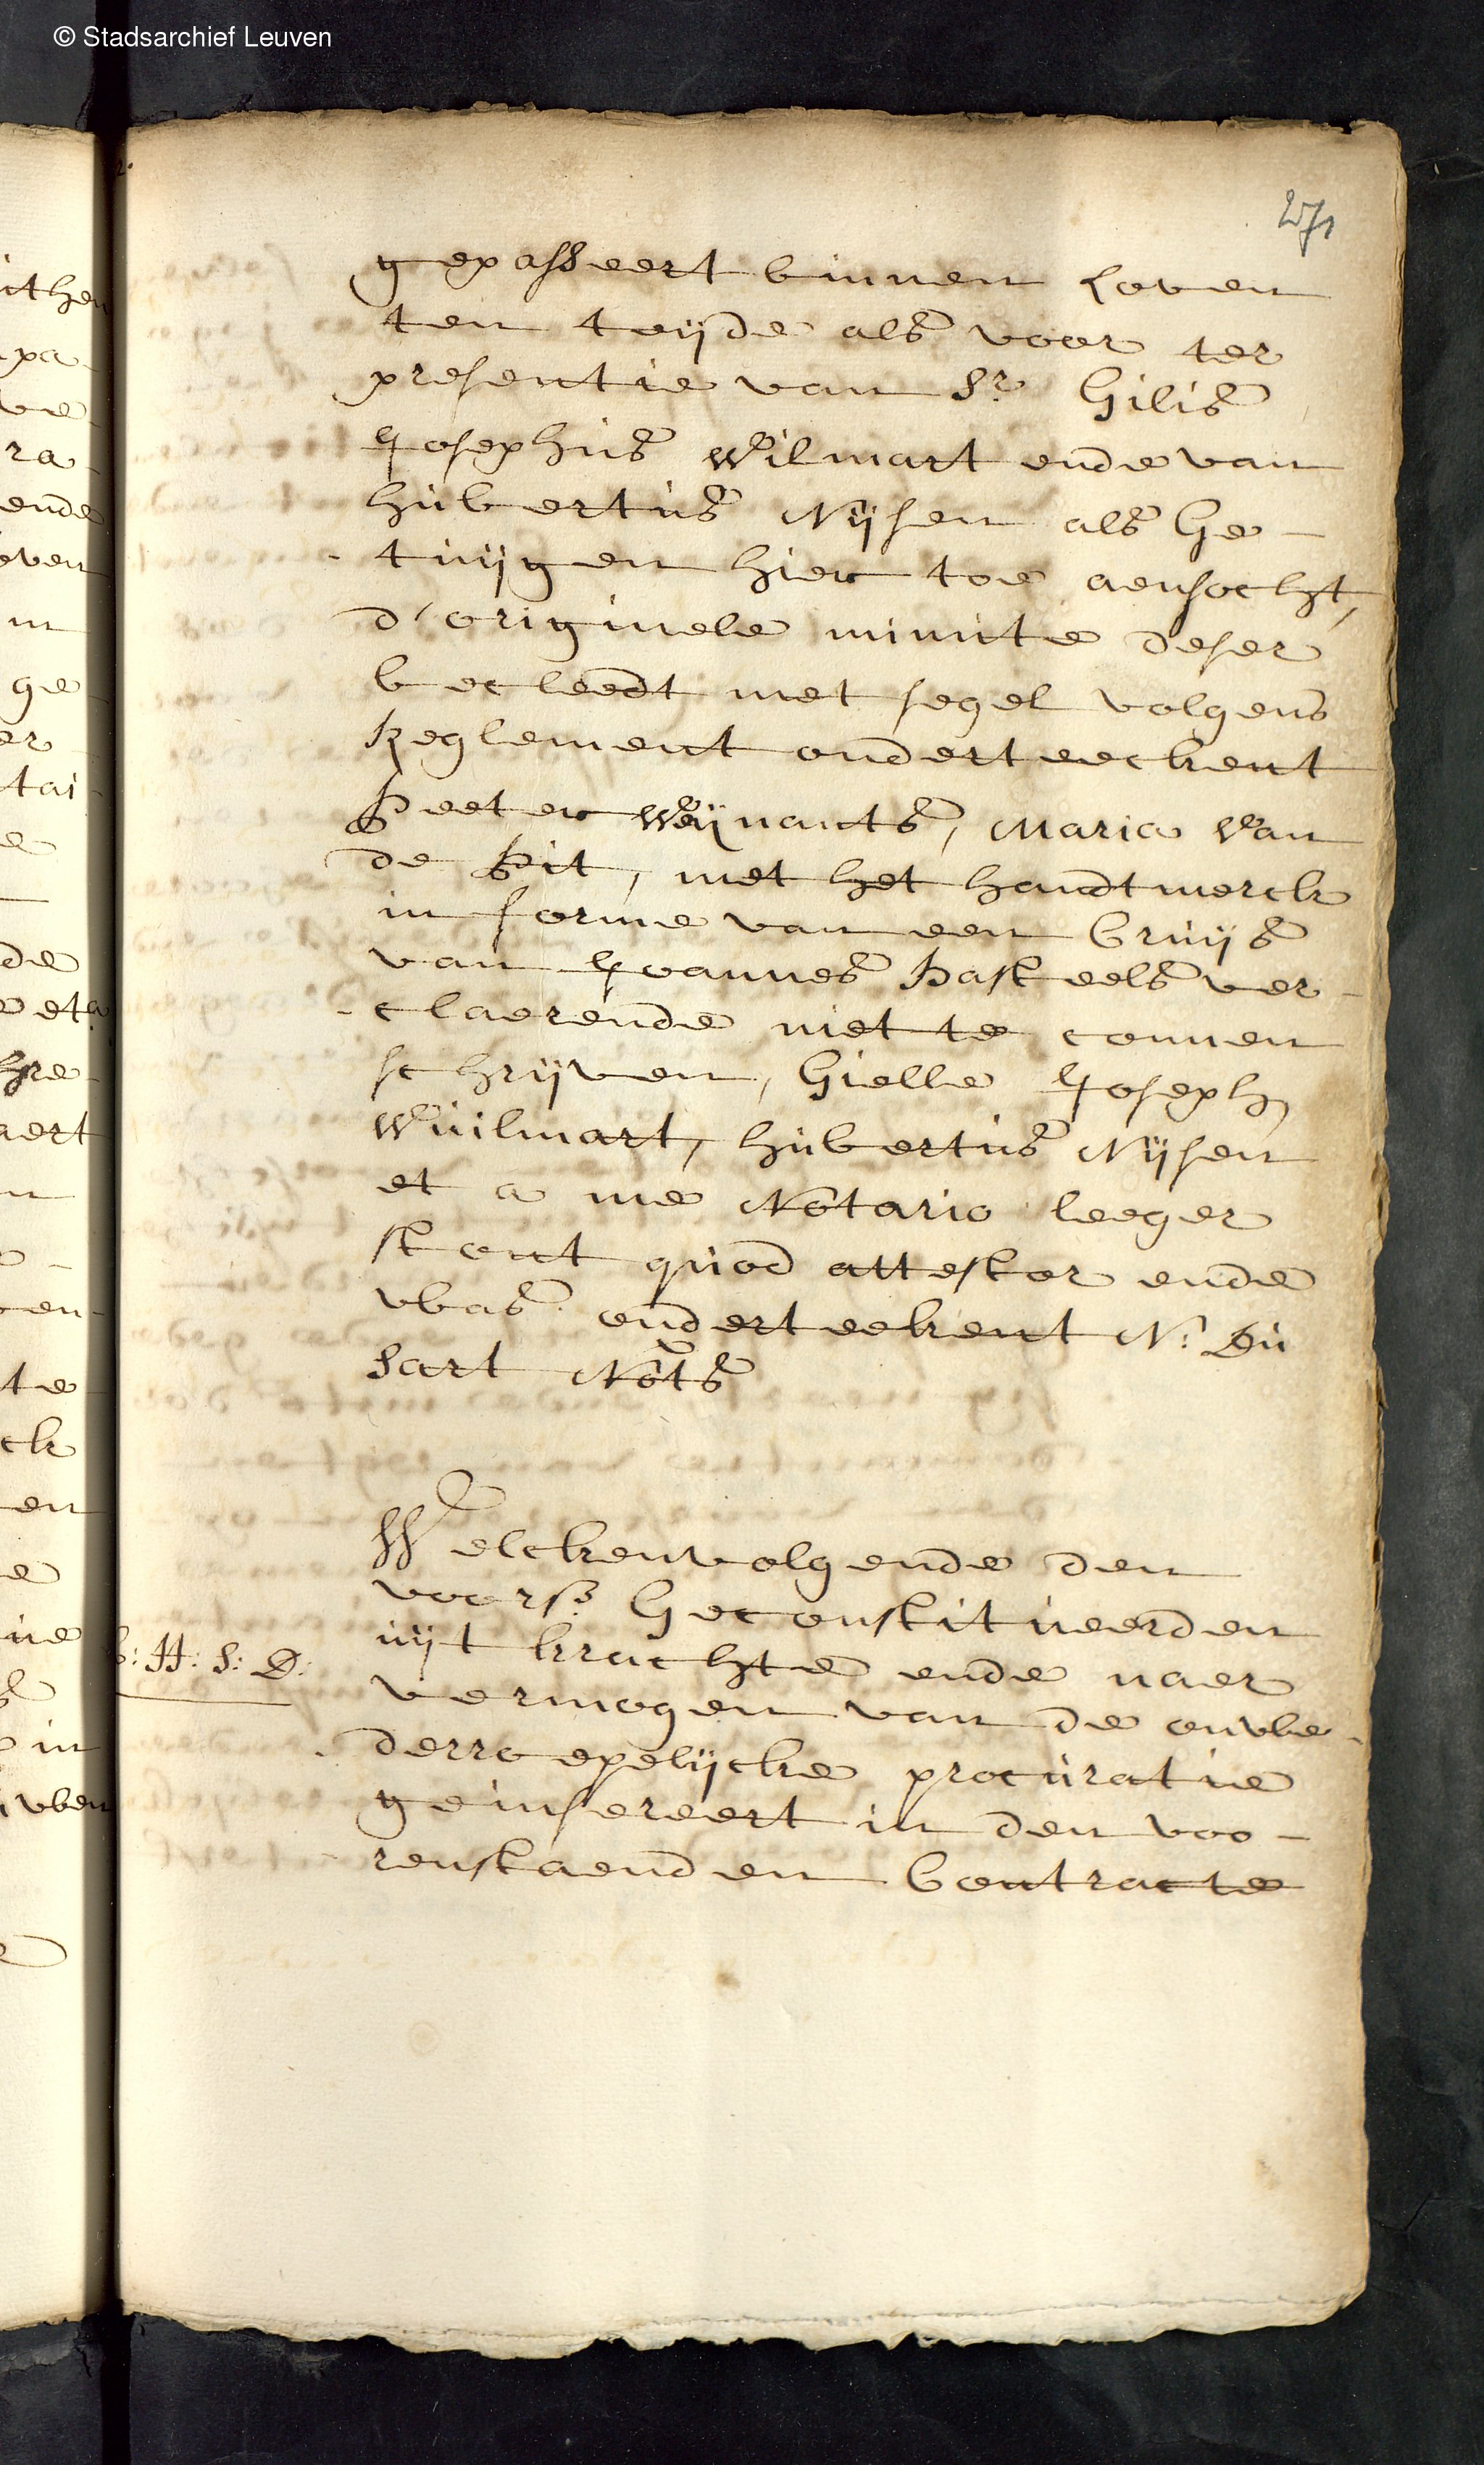 © Stadsarchief Leuven
271
gepasseert binnen Loven
ten teijde als voor ter
presentie van Sr. Gilis
Josephus Wilmart ende van
hubertus Nijsen als Ge-
tuijgen hier toe aensocht,
d'originele minute deser
becleedt met segel volgens
Reglement onderteeckent
Peeter Weijnants, Maria Van
de Pit, met het handtmerck
in forme van een Cruijs
van Joannes Pasteels ver-
claerende niet te connen
schrijven, Gielle Joseph
Wuilmart, hubertus Nijsen
et a me Notario leeger
stont quod attestor ende
was onderteekent N: Du
Sart Nots
Welckenvolgende den
voors. Geconstitueerden
uijt krachte ende naer
vermogen van de onwe-
derroepelijcke procuratie
geinsereert in den voo-
renstaenden Contracte
H: S: D: